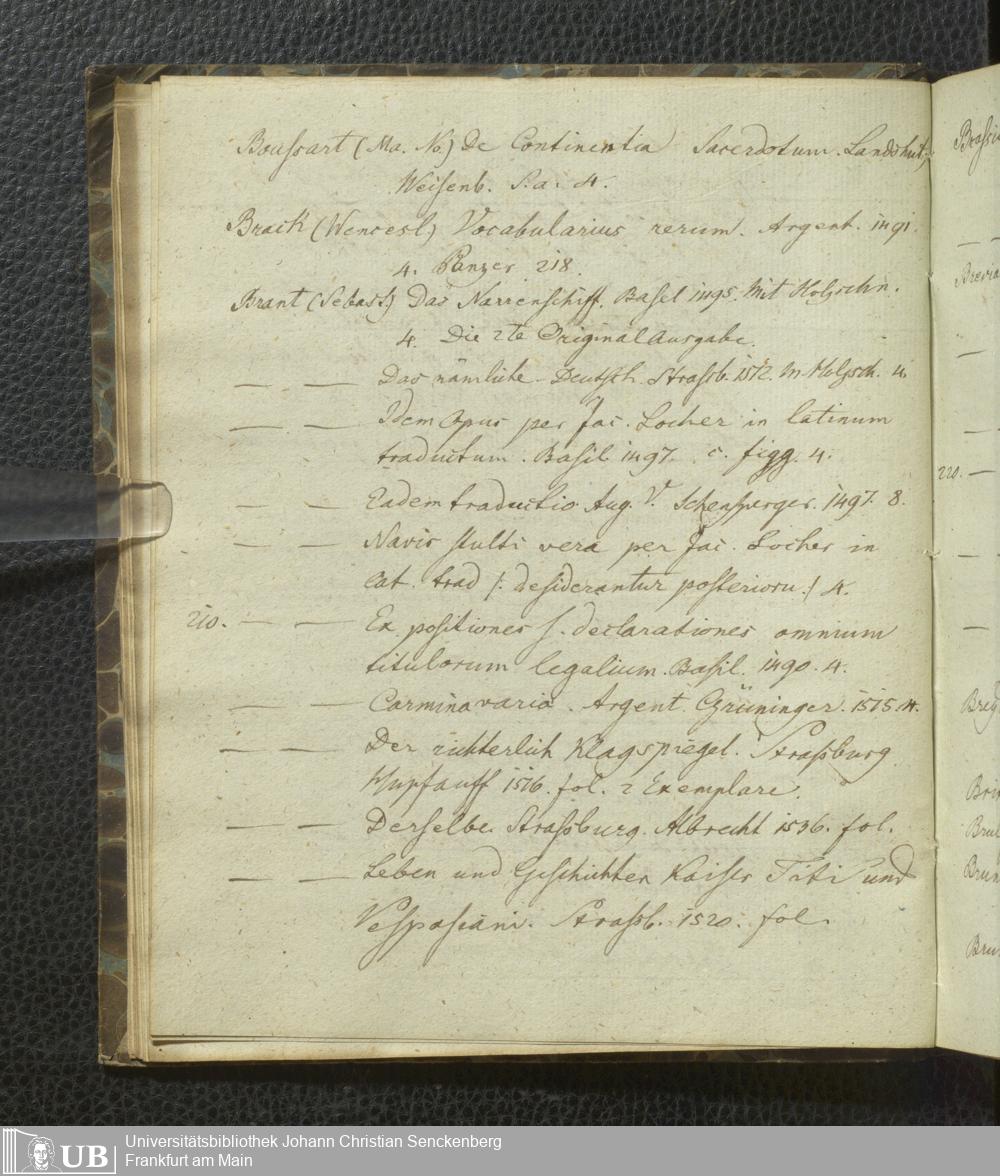 Boussart (Ma. No.) De Continentia Sacerdotum. Landshut,
Weisenb. S. a. 4.
Brack (Wencesl.) Vocabularius rerum. Argent. 1491.
4. Panzer 218.
Brant (Sebast.) Das Narrenschiff. Basel 1495. Mit Holzschn.
4. Die 2te Original Ausgabe.
— — Das nämliche Deutsch. Strassb. 1512. M. Holzsch. 4.
— — Idem opus per Jac. Locher in latinum
traductum. Basil. 1497. c. figg. 4.
— — Eadem traductio Aug. V. Schensperger. 1497. 8.
— — Navis stulti vera per Jac. Locher in
lat. trad /: desiderantur posterioru :/ 4.
210. — — Expositiones s. declarationes omnium
titulorum legalium. Basil. 1490. 4.
— — Carmina varia. Argent Grüninger. 1515. 4.
— — Der richterlich Klagspiegel. Straßburg
Hupfauff 1516. fol. 2 Exemplare.
— — Derselbe. Straßburg. Albrecht 1536. fol.
— — Leben und Geschichten Kaiser Titi und
Vespasiani. Strassb. 1520. fol.
220. —
UB
Universitätsbibliothek Johann Christian Senckenberg
Frankfurt am Main